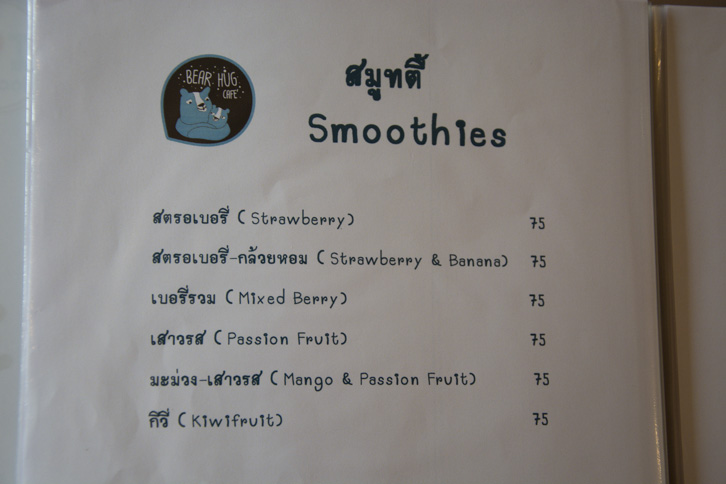 BEAR HUG
CAFE
สมูทตี้
Smoothies
สตรอเบอรี่ (Strawberry) 75
สตรอเบอรี่-กล้วยหอม (Strawberry & Banana) 75
เบอรี่รวม (Mixed Berry) 75
เสาวรส (Passion Fruit) 75
มะม่วง-เสาวรส (Mango & Passion Fruit) 75
กีวี่ (Kiwifruit) 75